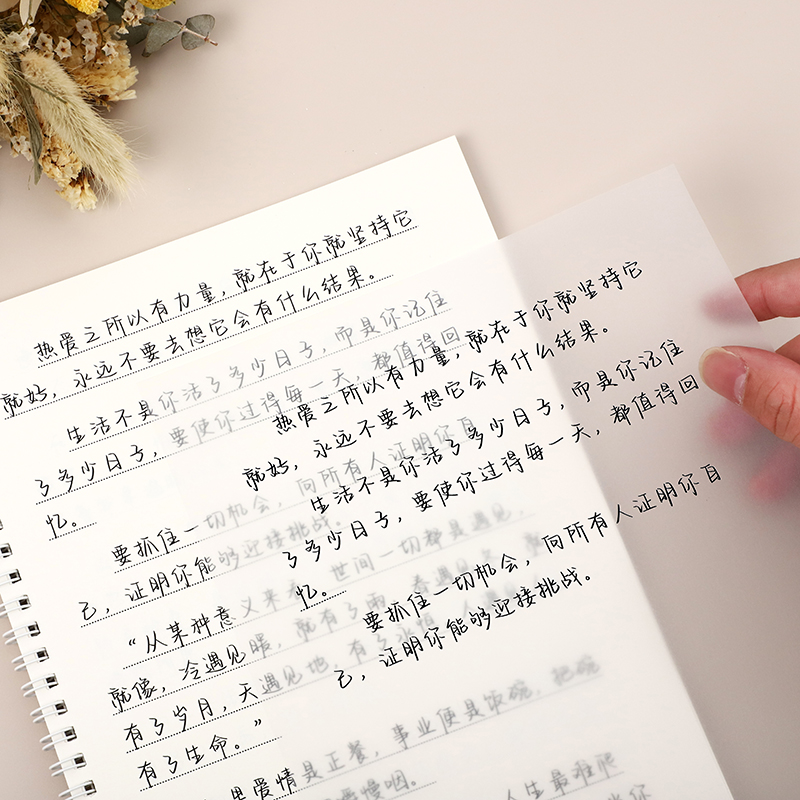 热爱之所以有力量,就在于你就坚持它
就好,永远不要去想它会有什么结果。
生活不是你活了多少日子,而是你记住
了多少日子,要使你过得每一天,都值得回
忆。
要抓住一切机会,向所有人证明你自
己,证明你能够迎接挑战。
“从某种意义来看,世间一切都是遇见,
就像,冷遇见暖,就有了雨,春遇见冬,
有了岁月,天遇见地,有了
有了生命。”
果爱情是正餐,事业便是饭碗,把碗
要慢咽。
人生最难
热爱之所以有力量,就在于你就坚持它
就好,永远不要去想它会有什么结果。
生活不是你活了多少日子,而是你记住
了多少日子,要使你过得每一天,都值得回
忆。
要抓住一切机会,向所有人证明你自
己,证明你能够迎接挑战。